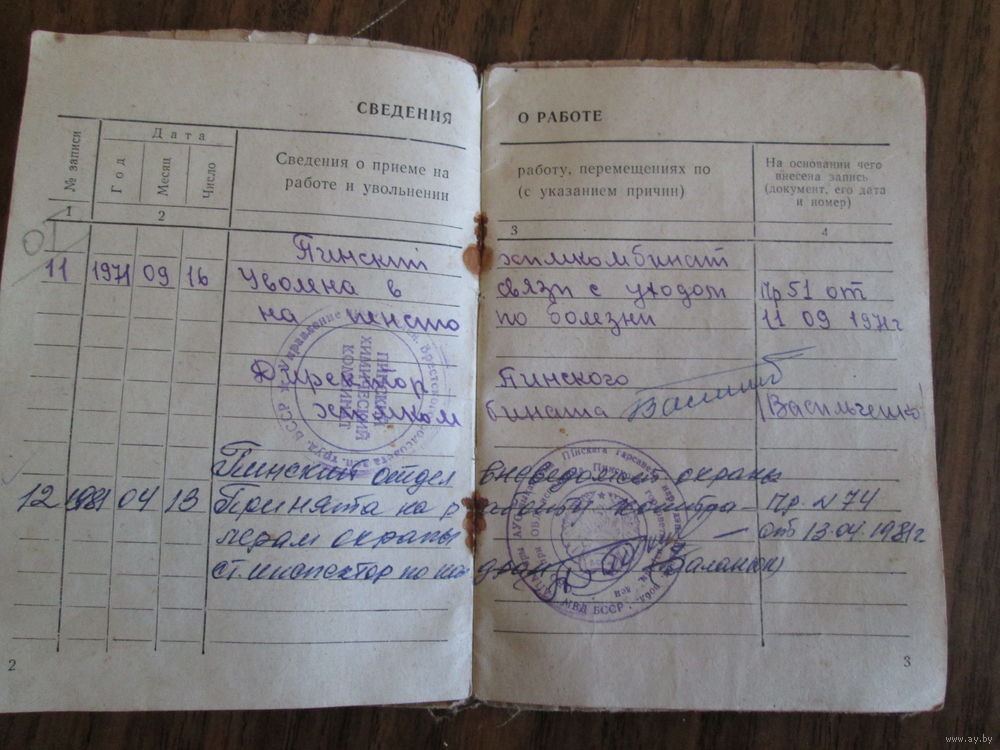 СВЕДЕНИЯ О РАБОТЕ
№ записи
Дата
Год
Месяц
Число
Сведения о приеме на работу, перемещениях по
работе и увольнении (с указанием причин)
На основании чего
внесена запись
(документ, его дата
и номер)
1 2 3 4
01
Пинский химкомбинат
11 1971 09 16 Уволена в связи с уходом Пр 51 от
на пенсию по болезни 11 09 1971г
Директор Пинского
химкомбината /Васильченко
ПИНСКИЙ
ХИМИЧЕСКИЙ
КОМБИНАТ
Пинский отдел вневедомст охраны
12 1981 04 13 Принята на Пр. N 74
от 13.04.1981г
охраны
ст. инспектор по
МВД БССР
2
3
www.ay.by